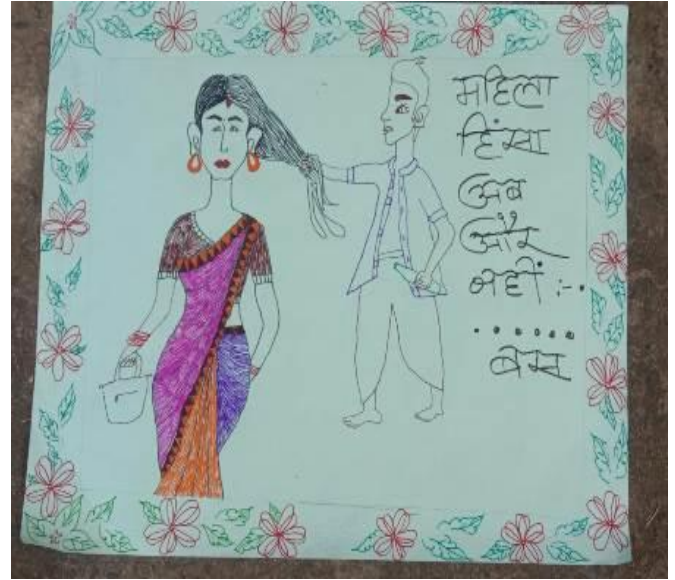 महिला
हिंसा
अब
और
नहीं :-
......
बस